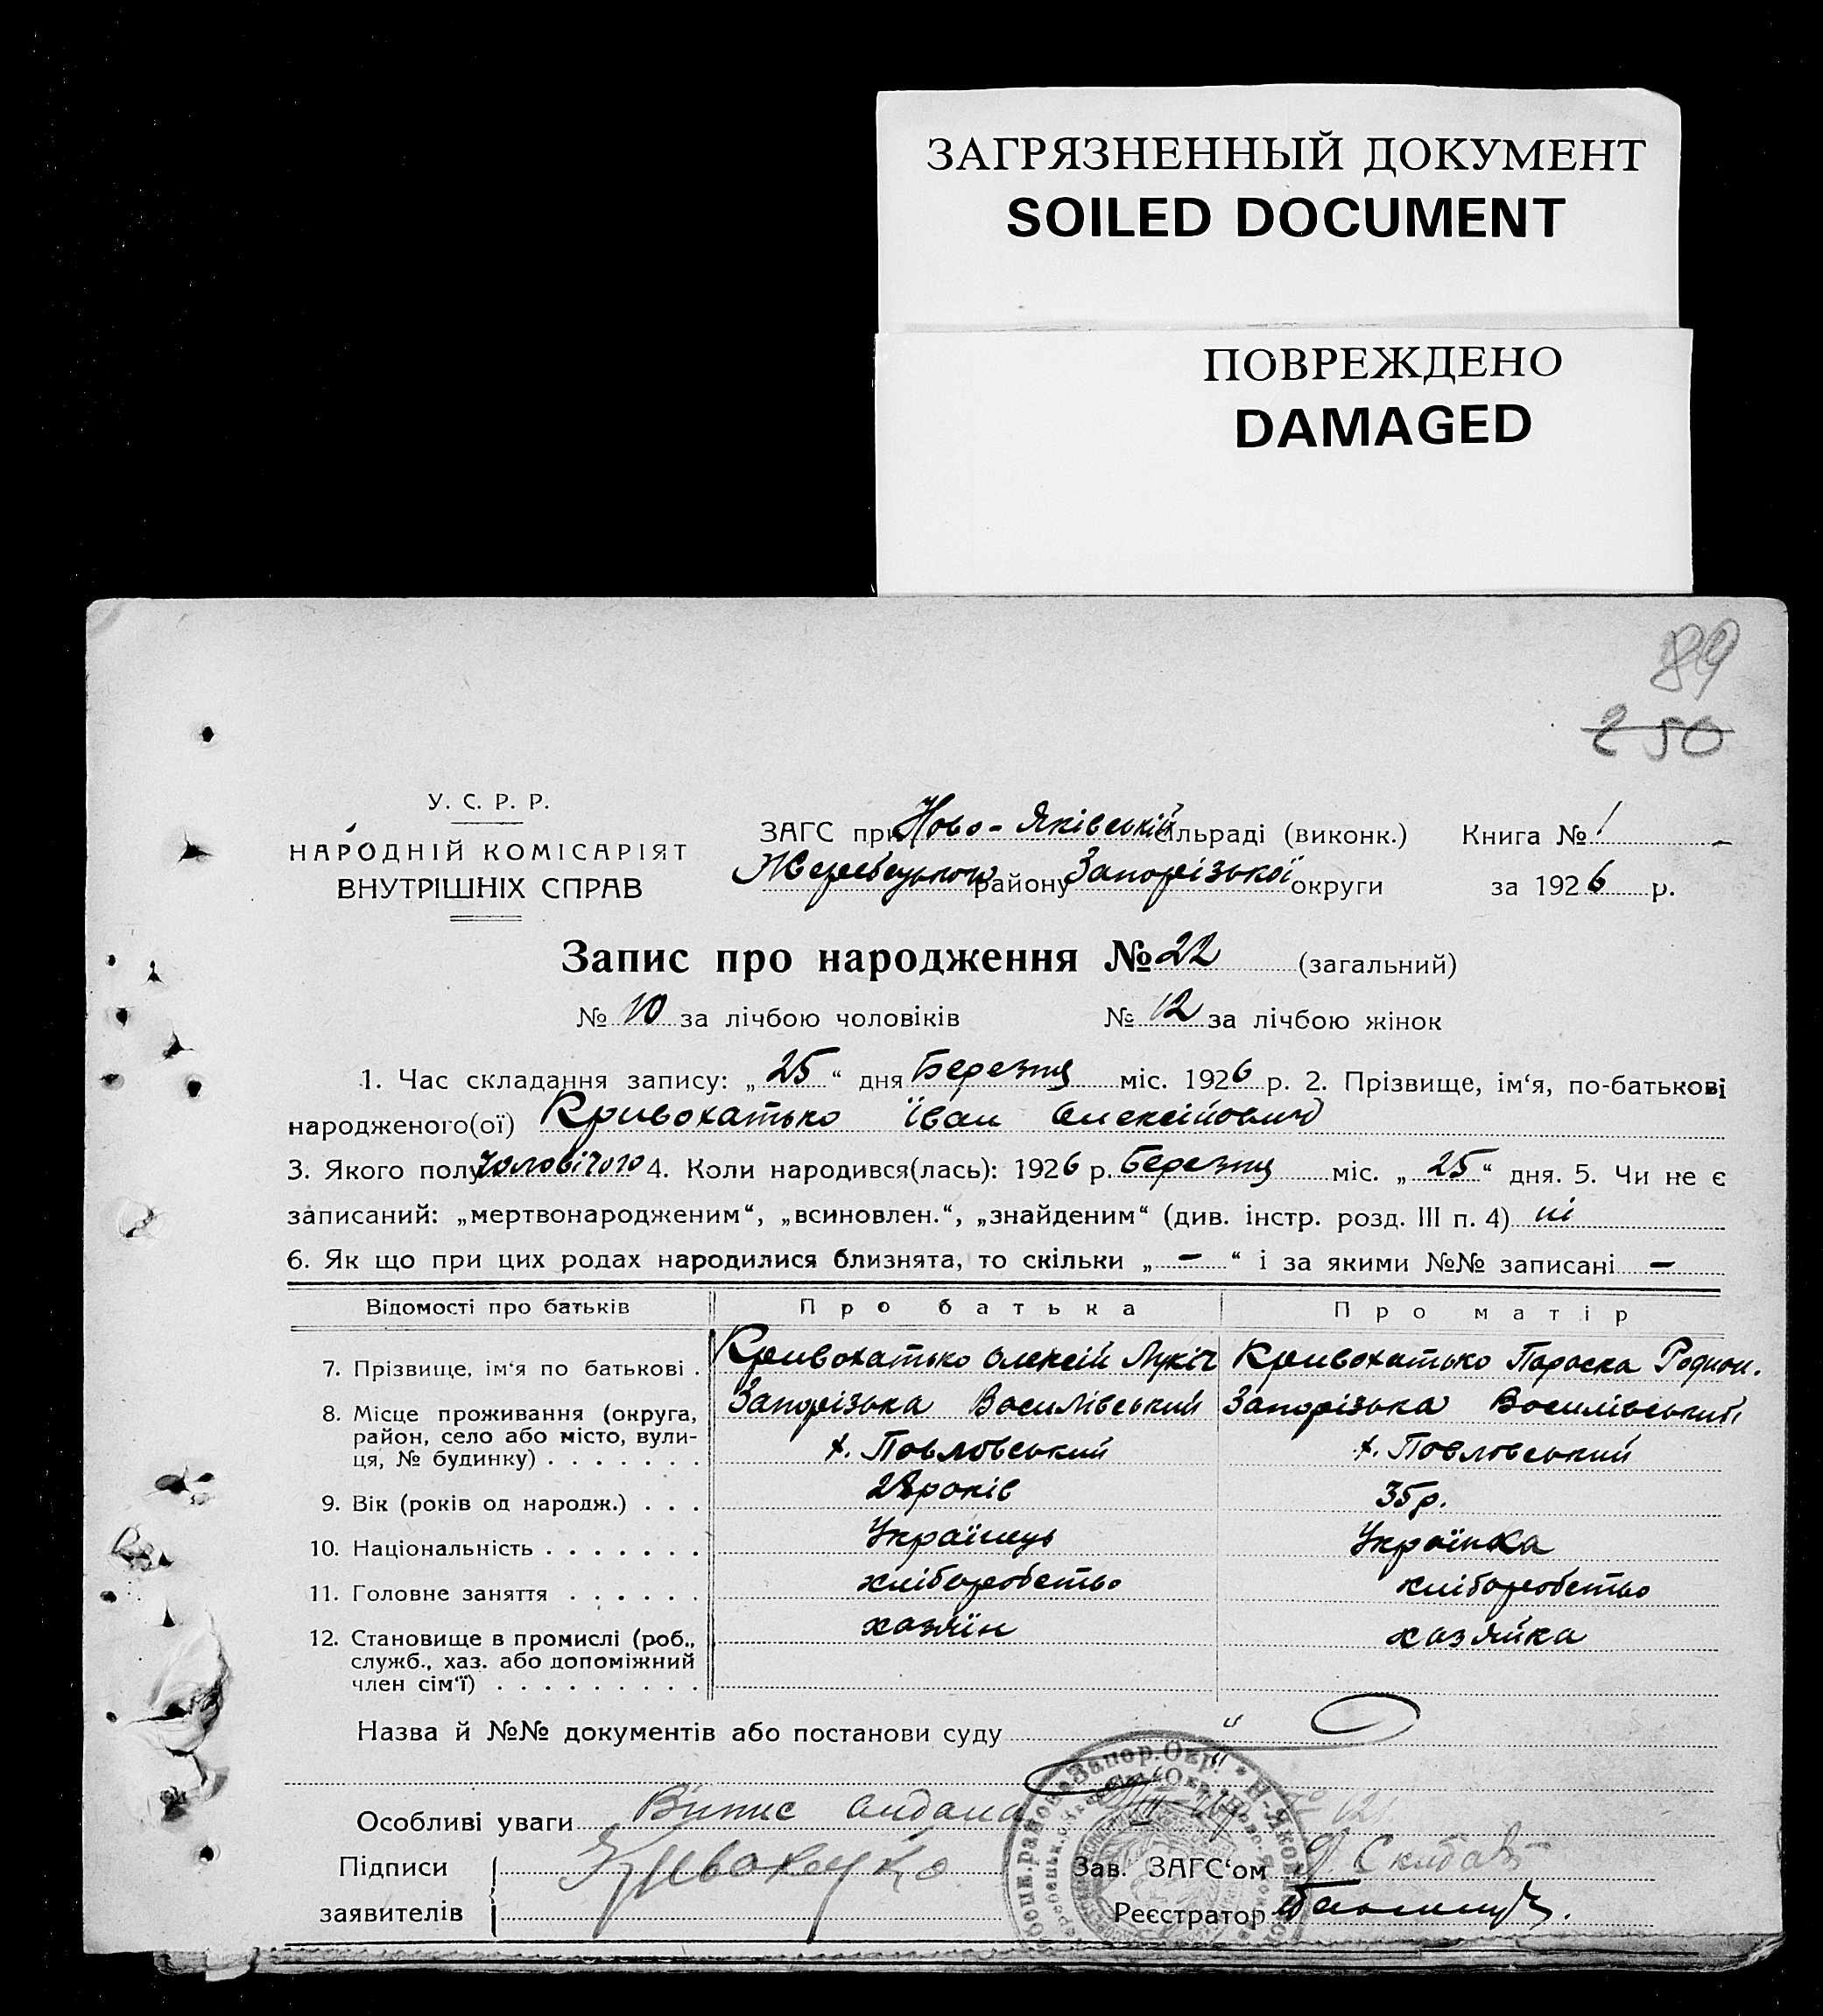 ЗАГРЯЗНЕННЫЙ ДОКУМЕНТ
SOILED DOCUMENT
ПОВРЕЖДЕНО
DAMAGED
89
250
У. С. Р. Р.
НАРОДНІЙ КОМІСАРІЯТ
ВНУТРІШНІХ СПРАВ
ЗАГС при Ново-Яківській сільраді (виконк.) Книга № 1
Жеребецького району Запорізької округи за 1926 р.
Запис про народження № 22 (загальний)
№ 10 за лічбою чоловіків № 12 за лічбою жінок
1. Час складання запису: „25“ дня Березня міс. 1926 р. 2. Прізвище, ім‘я, по-батькові
народженого(ої) Кривохатько Їван Олексійович
3. Якого полу чоловічого 4. Коли народився(лась): 1926 р. Березня міс. „25“ дня. 5. Чи не є
записаний: „мертвонародженим“, „всиновлен.“, „знайденим“ (див. інстр. розд. III п. 4) ні
6. Як що при цих родах народилися близнята, то скільки „ – “ і за якими №№ записані –
Відомості про батьків Про батька Про матір
7. Прізвище, ім‘я по батькові . Кривохатько Олексій Лукіч Кривохатько Параска Родион.
8. Місце проживання (округа, Запорізька Василівський Запорізька Василівський
район, село або місто, вули-
ця, № будинку) . . . . . . . х. Павловський х. Павловський
9. Вік (років од народж.) . . . 28 років 35 р.
10. Національність . . . . . . . Українець Українка
11. Головне заняття . . . . . . хліборобство хліборобство
12. Становище в промислі (роб., хазяїн хазяйка
служб., хаз. або допоміжний
член сім‘ї) . . . . . . . . .
Назва й №№ документів або постанови суду "
Особливі уваги Випис видана
Підписи Зав. ЗАГС‘ом
заявителів Реєстратор